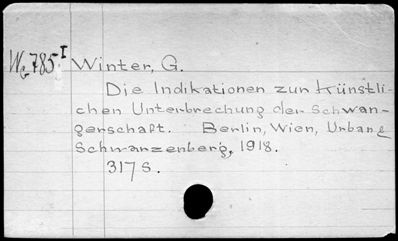 Wg 785:I Winter, G.
Die Indikationen zur künstli-
chen Unterbrechung der Schwan-
gerschaft. Berlin, Wien, Urban &
Schwarzenberg, 1918.
317 S.